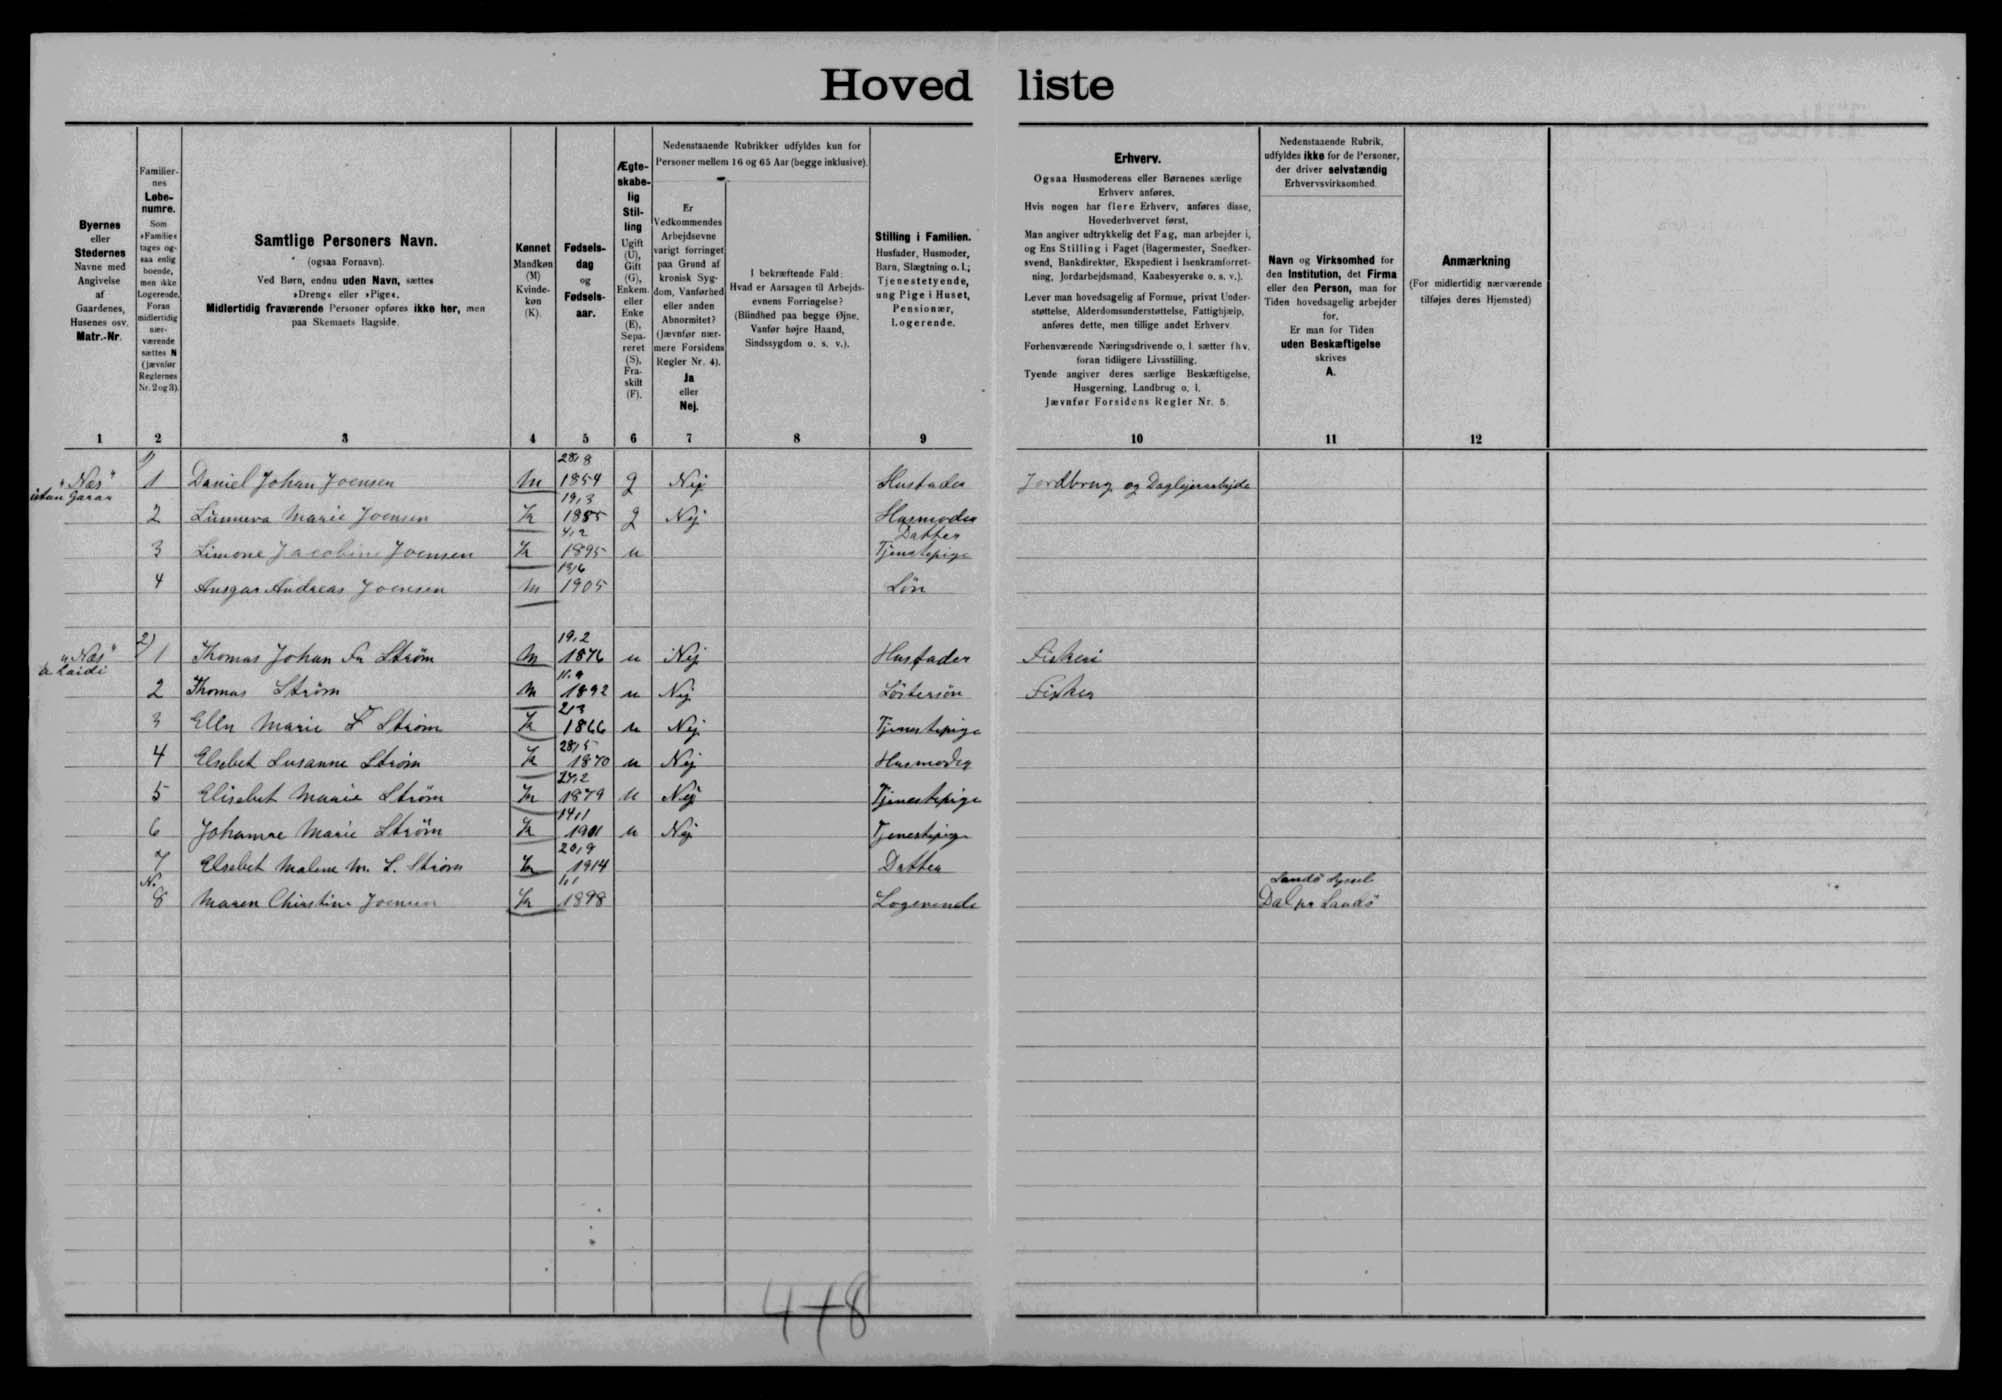 Hovedliste
Byernes
eller
Stedernes
Navne med
Angivelse
af
Gaardenes,
Husenes osv.
Matr.-Nr.
Familier-
nes
Løbe-
numre.
Som
»Familie«
tages og-
saa enlig
boende,
men ikke
Logerende.
Foran
midlertidig
nær-
værende
sættes N
(jævnfør
Reglernes
Nr. 2 og 3).
Samtlige Personers Navn.
(ogsaa Fornavn).
Ved Børn, endnu uden Navn, sættes
»Dreng« eller »Pige«.
Midlertidig fraværende Personer opføres ikke her, men
paa Skemaets Bagside.
Kønnet
Mandkøn
(M)
Kvinde-
køn
(K).
Fødsels-
dag
og
Fødsels-
aar.
Ægte-
skabe-
lig
Stil-
ling
Ugift
(U),
Gift
(G),
Enkem.
eller
Enke
(E),
Sepa-
reret
(S),
Fra-
skilt
(F).
Nedenstaaende Rubrikker udfyldes kun for
Personer mellem 16 og 65 Aar (begge inklusive).
Er
Vedkommendes
Arbejdsevne
varigt forringet
paa Grund af
kronisk Syg-
dom, Vanførhed
eller anden
Abnormitet?
(Jævnfør nær-
mere Forsidens
Regler Nr. 4).
Ja
eller
Nej.
I bekræftende Fald:
Hvad er Aarsagen til Arbejds-
evnens Forringelse?
(Blindhed paa begge Øjne,
Vanfør højre Haand,
Sindssygdom o. s. v.).
Stilling i Familien.
Husfader, Husmoder,
Barn, Slægtning o. l.;
Tjenestetyende,
ung Pige i Huset,
Pensionær,
Logerende.
Erhverv.
Ogsaa Husmoderens eller Børnenes særlige
Erhverv anføres.
Hvis nogen har flere Erhverv, anføres disse,
Hovederhvervet først.
Man angiver udtrykkelig det Fag, man arbejder i,
og Ens Stilling i Faget (Bagermester, Snedker-
svend, Bankdirektør, Ekspedient i Isenkramforret-
ning, Jordarbejdsmand, Kaabesyerske o. s. v.).
Lever man hovedsagelig af Formue, privat Under-
støttelse, Alderdomsunderstøttelse, Fattighjælp,
anføres dette, men tillige andet Erhverv.
Forhenværende Næringsdrivende o. l. sætter fhv.
foran tidligere Livsstilling.
Tyende angiver deres særlige Beskæftigelse,
Husgerning, Landbrug o. l.
Jævnfør Forsidens Regler Nr. 5.
Nedenstaaende Rubrik,
udfyldes ikke for de Personer,
der driver selvstændig
Erhvervsvirksomhed.
Navn og Virksomhed for
den Institution, det Firma
eller den Person, man for
Tiden hovedsagelig arbejder
for.
Er man for Tiden
uden Beskæftigelse
skrives
A.
Anmærkning
(For midlertidig nærværende
tilføjes deres Hjemsted)
1 2 3 4 5 6 7 8 9 10 11 12
"Næs" 1) 1 Daniel Johan Joensen M 28/8 1854 g Nej Husfader Jordbrug og Daglejerarbejde
2 Marie Joensen K 19/3 1855 g Nej Husmoder
3 Simone Jacobine Joensen K 4/2 1895 u Datter Tjenestepige
4 Ansgar Andreas Joensen M 19/6 1905 Søn
"Næs" 2) 1 Thomas Johan Fr Strøm M 19/2 1876 u Nej Husfader Fiskeri
2 Thomas Strøm M 11/9 1892 u Nej Søstersøn Fisker
3 Ellen Marie Strøm K 21/3 1866 u Nej Tjenestepige
4 Elsebet Susanne Strøm K 28/5 1870 u Nej Husmoder
5 Elisebet Marie Strøm K 24/2 1879 u Nej Tjenestepige
6 Johanne Marie Strøm K 14/1 1901 u Nej Tjenestepige
7 Elsebet Malene M. S. Strøm K 20/9 1914 Datter
N. 8 Maren Christine Joensen K 1/1 1898 Logerende Sandø Syssel
Dal pr Sandø
4+8